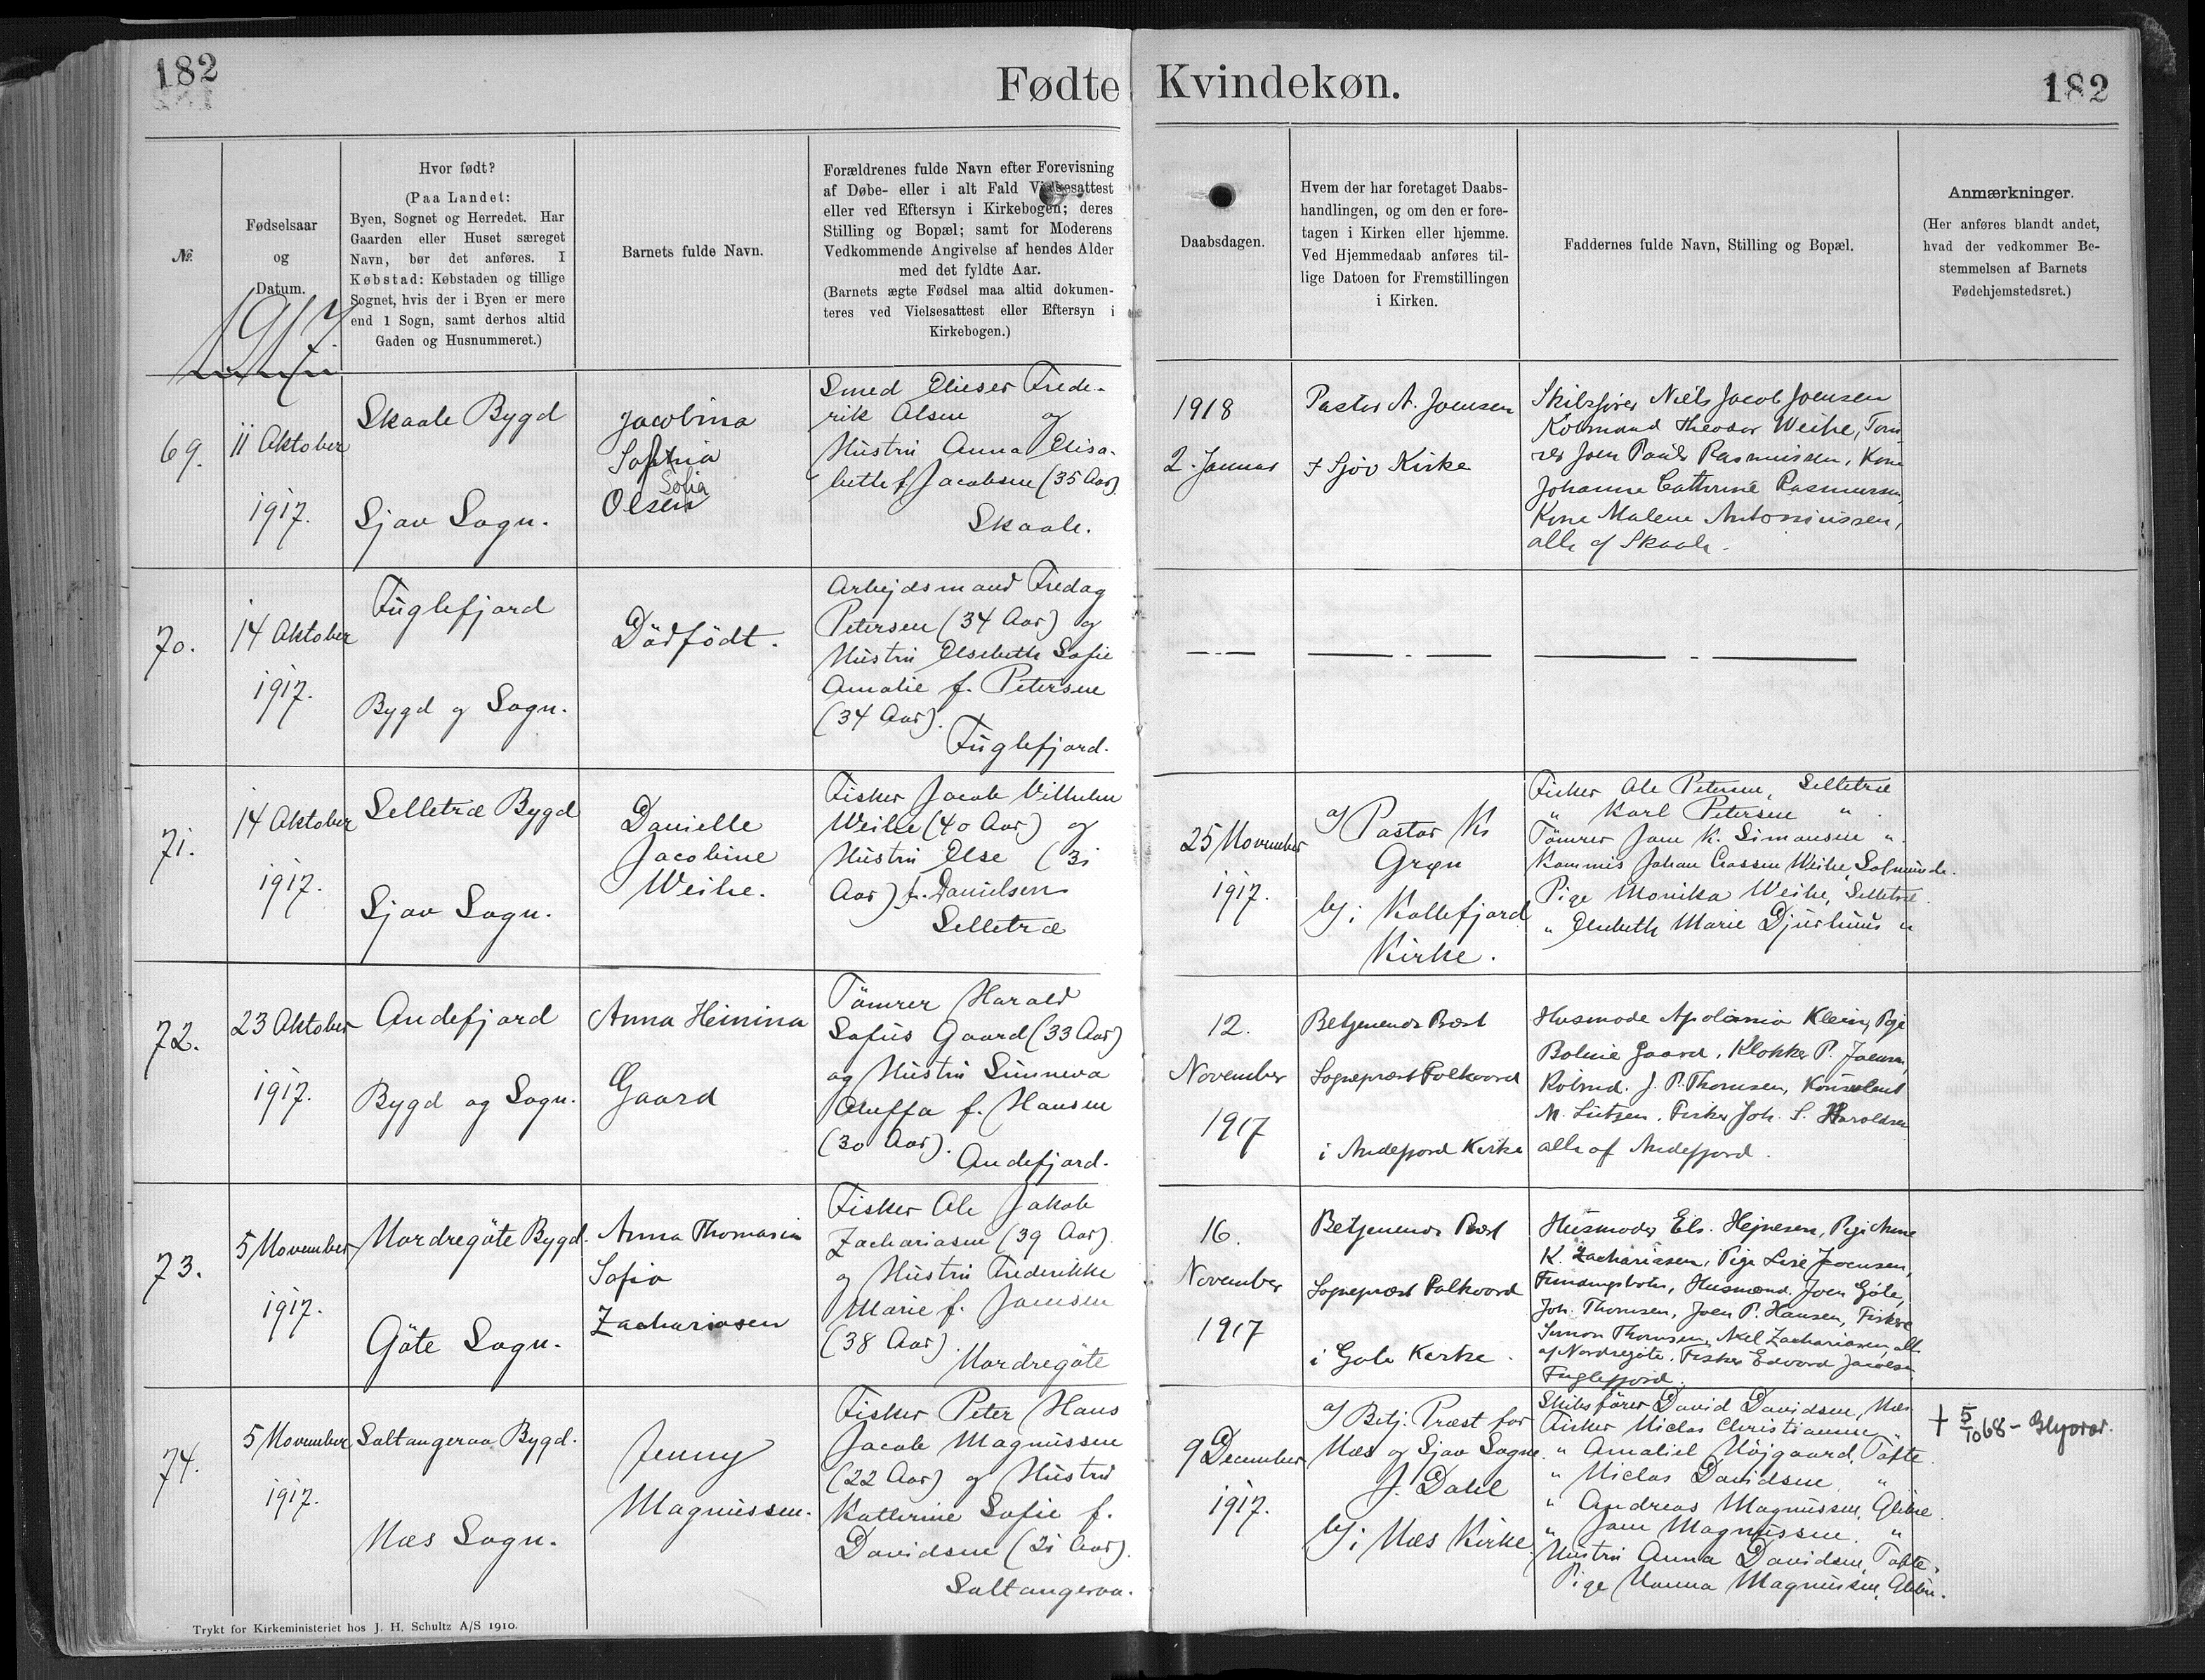 182
Fødte Kvindekøn.
182
№
Fødselsaar
og
Datum.
Hvor født?
(Paa Landet:
Byen, Sognet og Herredet. Har
Gaarden eller Huset særeget
Navn, bør det anføres. I
Købstad: Købstaden og tillige
Sognet, hvis der i Byen er mere
end 1 Sogn, samt derhos altid
Gaden og Husnummeret.)
Barnets fulde Navn.
Forældrenes fulde Navn efter Forevisning
af Døbe- eller i alt Fald Vielsesattest
eller ved Eftersyn i Kirkebogen; deres
Stilling og Bopæl; samt for Moderens
Vedkommende Angivelse af hendes Alder
med det fyldte Aar.
(Barnets ægte Fødsel maa altid dokumen-
teres ved Vielsesattest eller Eftersyn i
Kirkebogen.)
Daabsdagen.
Hvem der har foretaget Daabs-
handlingen, og om den er fore-
tagen i Kirken eller hjemme.
Ved Hjemmedaab anføres til-
lige Datoen for Fremstillingen
i Kirken.
Faddernes fulde Navn, Stilling og Bopæl.
Anmærkninger.
(Her anføres blandt andet,
hvad der vedkommer Be-
stemmelsen af Barnets
Fødehjemstedsret.)
1917
69.
11 Oktober
1917.
Skaale Bygd
Sjov Sogn.
Jacobina
Sofia
Olsen
Smed Elieser Frede-
rik Olsen og
Hustru Anna Elisa-
beth f. Jacobsen (35 Aar)
Skaale.
1918
2. Januar
Pastor A. Joensen
Sjov Kirke
Skibsfører Niels Jacob Joensen
Købmand Theodor Weihe, Tøm
rer Joen Pauls Rasmussen, Kone
Johanne Cathrine Rasmussen
Kone Malene Antoniussen,
alle af Skaale.
70.
14 Oktober
1917.
Fuglefjord
Bygd og Sogn.
Dødfødt.
Arbejdsmand Fredag
Petersen (34 Aar) og
Hustru Elsebeth Sofie
Amalie f. Petersen
(34 Aar).
Fuglefjord.
71.
14 Oktober
1917.
Selletræ Bygd
Sjov Sogn.
Danielle
Jacobine
Weihe.
Fisker Jacob Vilhelm
Weihe (40 Aar) og
Hustru Else (31
Aar) f. Danielsen
Selletræ
25 November
1917.
af Pastor K.
Gryn
i Kollefjord
Kirke.
Fisker Ole Petersen, Selletræ
" Karl Petersen "
Tømrer K. Simonsen "
Kommis Johan Weihe, Solmunde.
Pige Monika Weihe, Selletræ.
" Elsebeth Marie Djurhuus "
72.
23 Oktober
1917.
Andefjord
Bygd og Sogn.
Anna Heinina
Gaard
Tømrer Harald
Sofus Gaard (33 Aar)
og Hustru Sunneva
f. Hansen
(30 Aar).
Andefjord.
12.
November
1917
Betjenende Præst
Sognepræst Falkvard
i Andefjord Kirke
Husmode Apolonia Klein, Pige
Gaard, Klokker P. Joensen,
Købmd. J. P. Thomsen,
M. Lützen, Fisker Joh. S. Haroldsen
alle af Andefjord.
73.
5 November
1917.
Nordregøte Bygd.
Gøte Sogn.
Anna Thomasia
Sofia
Zachariasen
Fisker Ole Jakob
Zachariasen (39 Aar).
og Hustru Frederikke
Marie f. Joensen
(38 Aar).
Nordregøte
16.
November
1917
Betjenende Præst
Sognepræst Falkvard
i Gøte Kirke.
Husmoder Els. Hejnesen, Pige Anne
K. Zachariasen, Pige Lise Joensen,
Husmænd. Joen Gøte,
Joh. Thomsen, Joen P. Hansen, Fiskere
Simon Thomsen, Axel Zachariasen, alle
af Nordregøte. Fisker Edvard Jacobsen
Fuglefjord.
74.
5 November
1917.
Saltangeraa Bygd.
Næs Sogn.
Jenny
Magnussen.
Fisker Peter Hans
Jacob Magnussen
(22 Aar) og Hustru
Katherine Sofie f.
Davidsen (21 Aar).
Saltangeraa.
9 December
1917.
af Betj. Præst for
Næs og Sjov Sogne
J. Dahl
i Næs Kirke.
Skibsfører David Davidsen, Næs
Fisker Niclas Christiansen "
" Amaliel Højgaard, Tofte
" Niclas Davidsen "
" Andreas Magnussen, Glibre
" Magnussen. "
Hustru Anna Davidsen, Tofte.
Pige Hanna Magnussen, Glibre.
† 5/10 68 - Glyvrar.
Trykt for Kirkeministeriet hos J. H. Schultz A/S 1910.